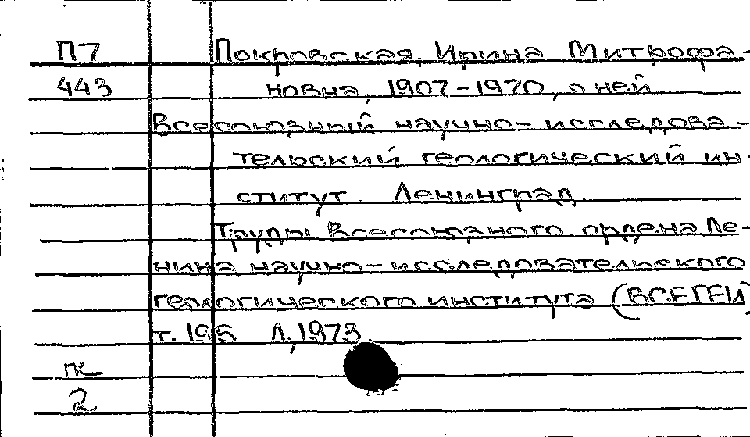 П7 Покровская, Ирина Митрофа-
443 новна, 1907-1970, о ней
Всесоюзный научно-исследова-
тельский геологический ин-
ститут. Ленинград.
Труды Всесоюзного ордена Ле-
нина научно-исследовательского
геологического института (ВСЕГЕИ)
т. 195 Л., 1973
2